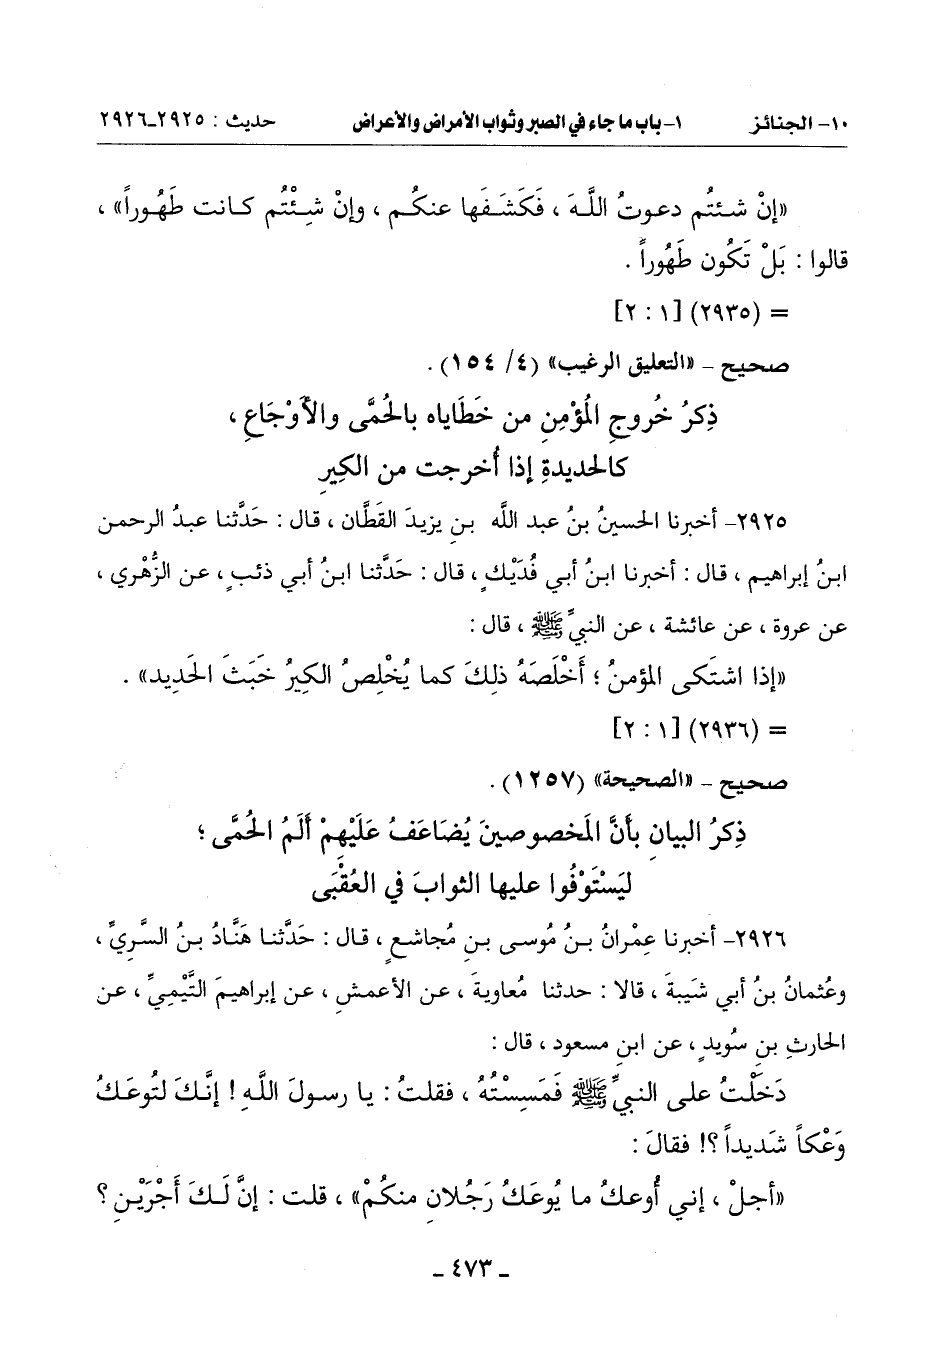 ١٠- الجنائز ١- باب ما جاء في الصبر وثواب الأمراض والأعراض حديث : ٢٩٢٥-٢٩٢٦
«إنْ شـئتُم دعوتُ اللَّـهَ ، فَكَشَـفَها عنكُـم ، وإنْ شِـئْتُم كـانت طَهُـوراً» ،
قالوا : بَلْ تَكُون طَهُوراً .
= (٢٩٣٥) [١ : ٢]
صحيح – «التعليق الرغيب» (٤/ ١٥٤) .
ذِكرُ خُروجِ المُؤمِنِ من خَطَاياه بالحُمَّى والأوْجَاعِ ،
كالحديدةِ إذا أُخرجت من الكِيرِ
٢٩٢٥- أخبرنا الحسينُ بنُ عبد اللَّه بنِ يزيدَ القَطَّان ، قال : حَدَّثنا عبدُ الرحمن
ابنُ إبراهيم ، قال : أخبرنا ابنُ أبي فُدَيْكٍ ، قال : حَدَّثنا ابنُ أبي ذئبٍ ، عن الزُّهْري ،
عن عروة ، عن عائشة ، عن النبيِّ ﷺ ، قال :
«إذا اشتَكى المؤمنُ ؛ أخْلَصَهُ ذلِكَ كما يُخْلِصُ الكيرُ خَبَثَ الحَدِيد» .
= (٢٩٣٦) [١ : ٢]
صحيح – «الصحيحة» (١٢٥٧) .
ذِكرُ البيانِ بأنَّ المَخصوصينَ يُضَاعَفُ عَلَيْهِمْ ألَمُ الحُمَّى ؛
ليَسْتَوْفُوا عليها الثوابَ في العُقْبَى
٢٩٢٦- أخبرنا عِمْرانُ بـنُ مُوسى بنِ مُجاشعٍ ، قال : حَدَّثنا هَنَّادُ بـنُ السَّريِّ ،
وعُثمانُ بنُ أبي شَيبةَ ، قالا : حدثنا مُعاويةَ ، عن الأعمشِ ، عن إبراهيمَ التَّيْمِيِّ ، عن
الحارثِ بنِ سُويدٍ ، عن ابنِ مسعود ، قال :
دَخَلْـتُ على النبيِّ ﷺ فَمَسِسْتُهُ ، فقلتُ : يا رسـولَ اللَّهِ ! إنَّـكَ لتُوعَـكُ
وَعْكاً شَديداً ؟! فقالَ :
«أجلْ ، إني أُوعـكُ ما يُوعَـكُ رَجُلانِ منكُمْ» ، قلت : إنَّ لَـكَ أَجْرَيْـنِ ؟
- ٤٧٣ -